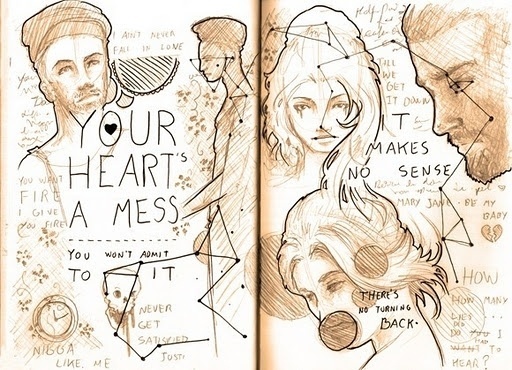 I AIN'T NEVER
FALL IN LOVE
YOUR
HEART'S
A MESS
YOU WANT
FIRE
I GIVE
YOU FIRE
YOU WON'T ADMIT
TO IT
NEVER
GET
SATISFIED
JUST
NIGGA
LIKE ME
TILL
WE
GET
IT DOWN
IT
MAKES
NO SENSE
MARY JANE BE MY
BABY
THERE'S
NO TURNING
BACK.
HOW
HOW MANY
LIES
DID
DO YOU
WANT TO
HEAR?